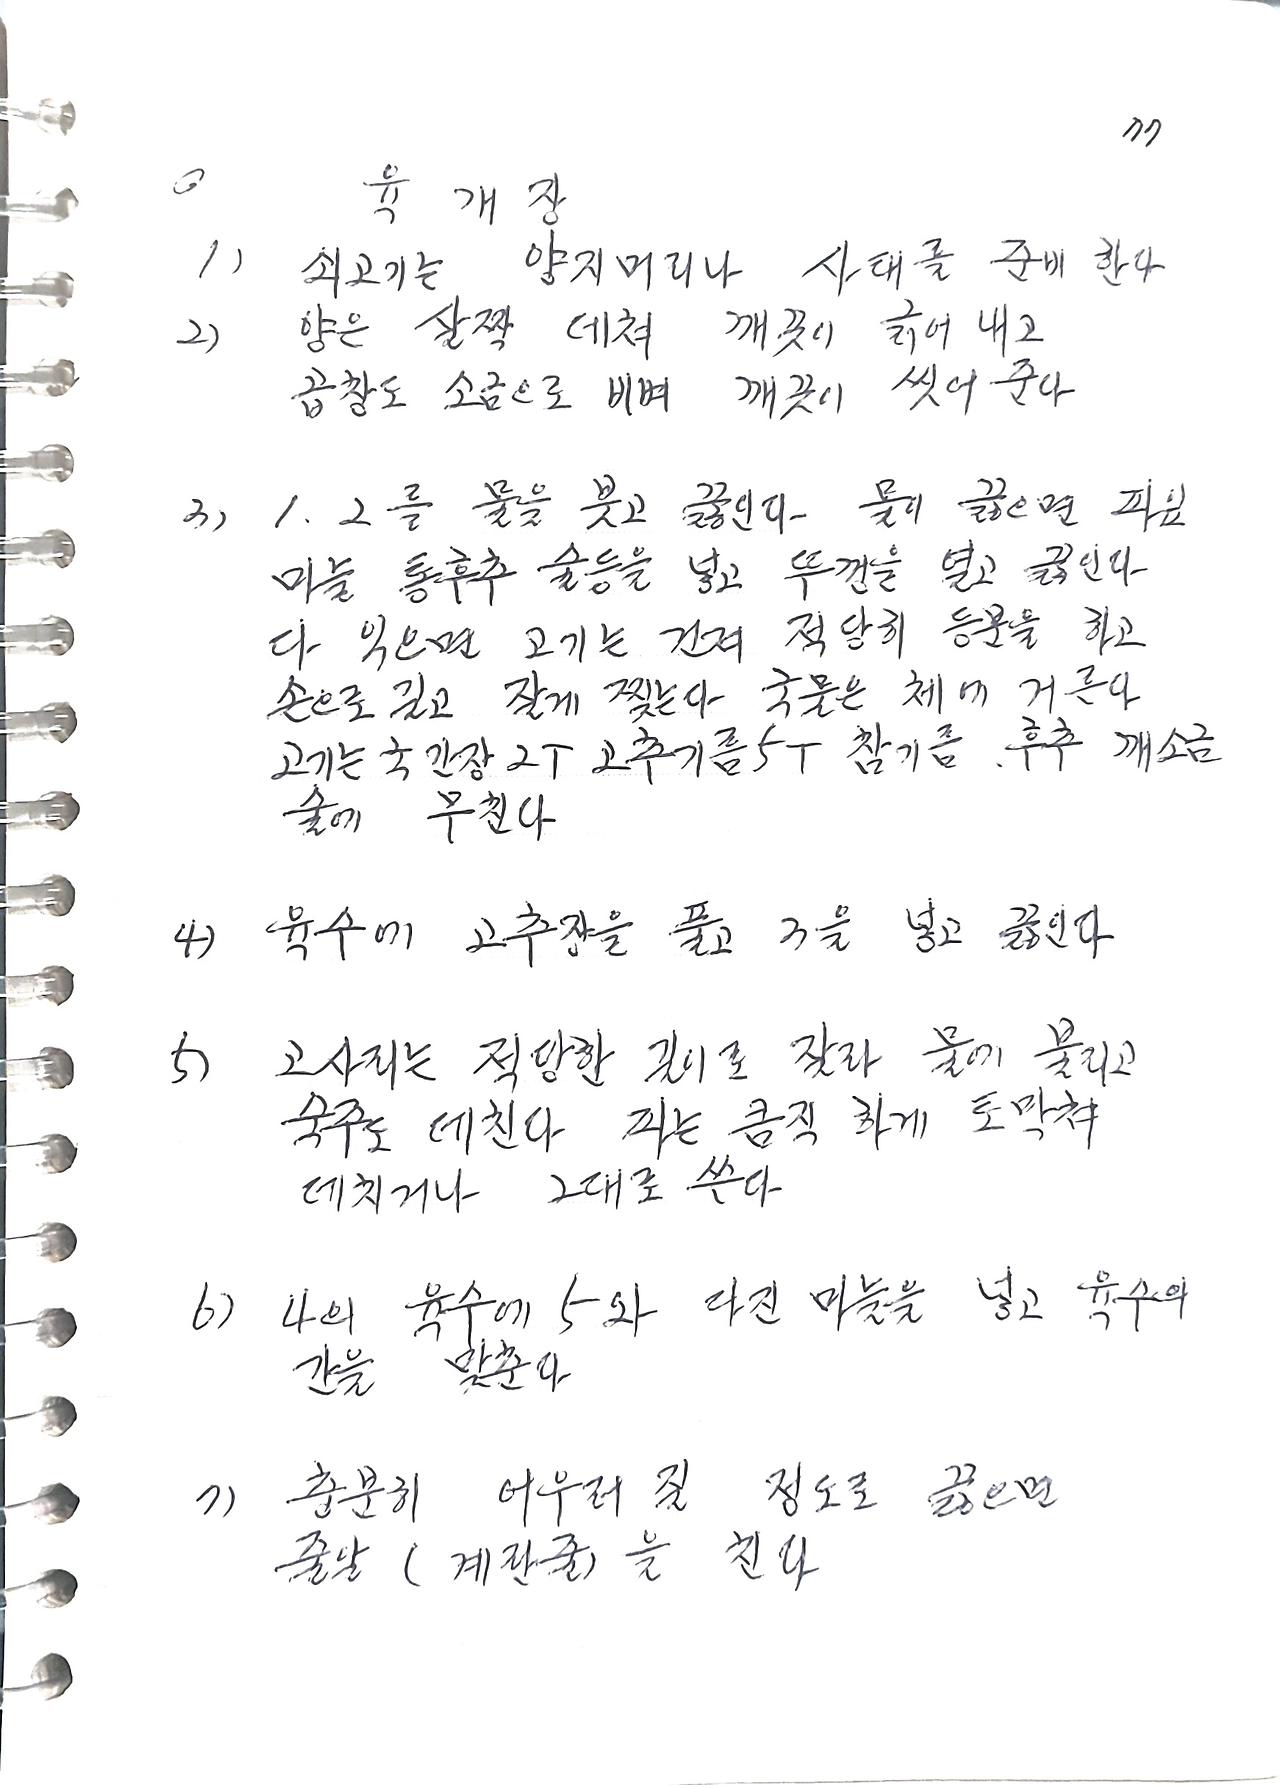 77
육개장
1) 쇠고기는 양지머리나 사태를 준비한다
2) 양은 살짝 데쳐 깨끗이 긁어내고
곱창도 소금으로 비벼 깨끗이 씻어준다
3) 1. 2를 물을 붓고 끓인다 물이 끓으면 파잎
마늘 통후추 술등을 넣고 뚜껑을 열고 끓인다
다 익으면 고기는 건져 적당히 등분을 하고
손으로 길고 잘게 찢는다 국물은 체에 거른다
고기는 국간장 2T 고추기름 5T 참기름 . 후추 깨소금
술에 무친다
4) 육수에 고추장을 풀고 3을 넣고 끓인다
5) 고사리는 적당한 길이로 잘라 물에 불리고
숙주도 데친다 파는 큼직하게 토막쳐
데치거나 그대로 쓴다
6) 4의 육수에 5와 다진 마늘을 넣고 육수의
간을 맞춘다
7) 충분히 어우러질 정도로 끓으면
줄알 (계란줄)을 친다